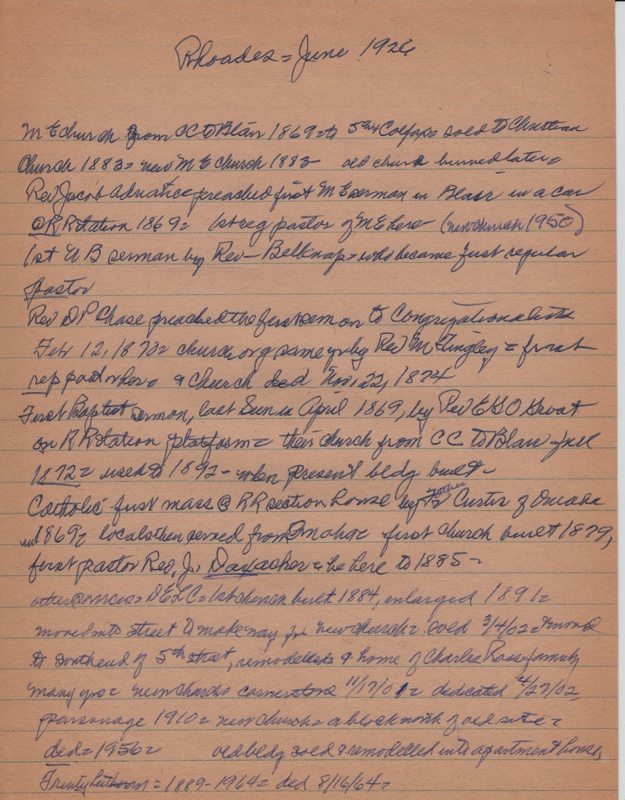 Rhoades = June 1926
M E church from CC to Blair 1869 = to 5th & Colfax = sold to Christian
Church 1883 = new M E church 1883 - old church burned later =
Rev Jacob Adriance preached first M E sermon in Blair in a car
@ R R station 1869 = 1st reg pastor of ME here (new church 1950)
1st U B sermon by Rev - Belknap = who became first regular
pastor
Rev D P Chase preached the first sermon to Congregationalists
Feb 12, 1870 = church org same yr by Rev M Tingley = first
reg pastor here = & church ded Nov, 22, 1874
First Baptist sermon, last Sun in April 1869, by Rev E G O Groat
on R R station platform = their church from CC to Blair fall
1872 = used to 1892 - when present bldg built -
Catholic first mass @ RR section house by Father Curtis of Omaha
in 1869 = locals then served from Omaha = first church built 1879,
first pastor Rev, J, Daxacher = he here to 1885 -
other sources = D E L C = 1st church built 1884, enlarged 1891 =
moved into street to make way for new church = sold 3/4/02 = & moved
to south end of 5th street, remodelled & home of Charles Rose family
many yrs = new church cornerstone 11/17/01 = dedicated 4/27/02
parsonage 1910 = new church = a block north of old site =
ded = 1956 = old bldg sold & remodelled into apartment house
Trinity Lutheran = 1889 - 1964 = ded 8/16/64 =